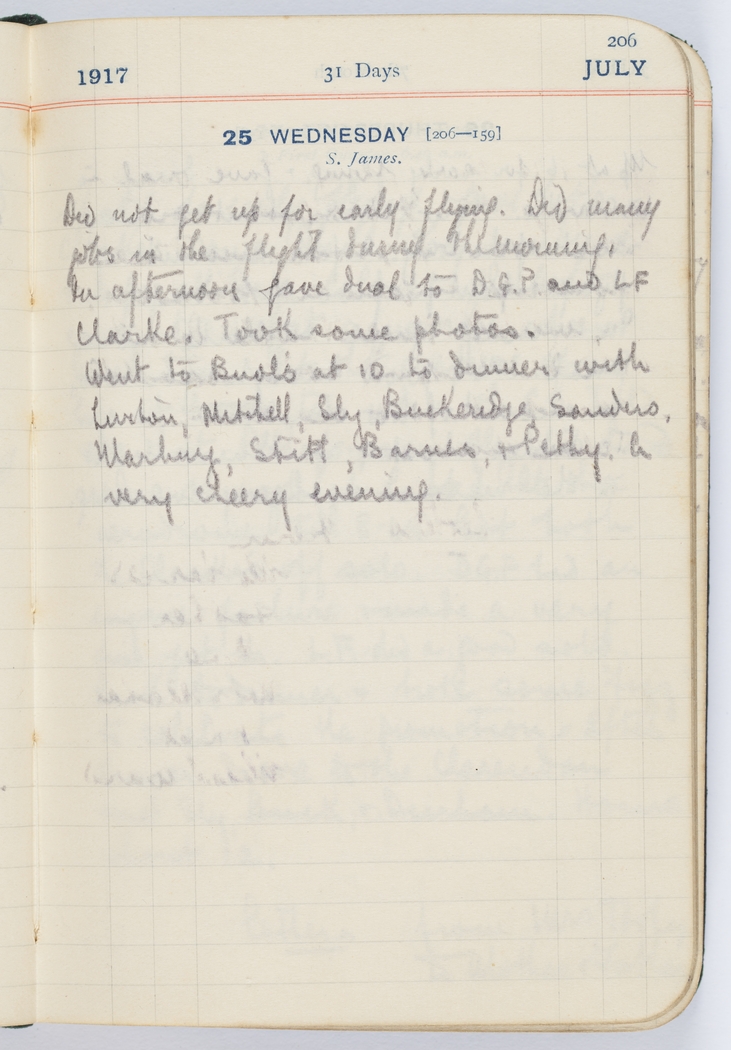 206
1917 31 Days JULY
25 WEDNESDAY [206—159]
S. James.
Did not get up for early flying. Did many
jobs in the flight during the morning.
In afternoon gave dual to D.G.P. and LF
Clarke. Took some photos.
Went to at 10 to dinner with
Luxton, Mitchell, Sly, Buckeridge, Sanders,
Warbury, Stitt, Barnes, + Pethy. A
very cheery evening.